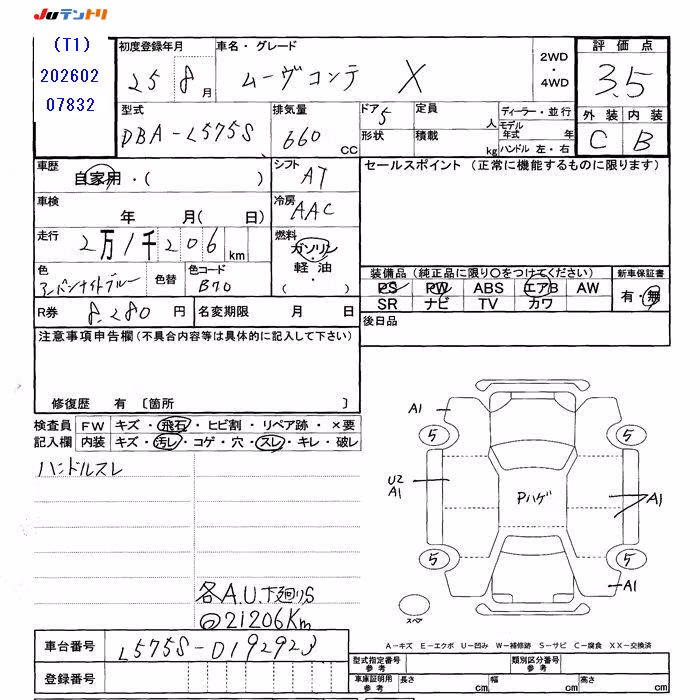 Juテントリ
(T1)
202602
07832
初度登録年月
25 8 月
車名・グレード
ムーヴコンテ X
2WD
・
4WD
評価点
3.5
外装 内装
C B
型式
DBA-L575S
排気量
660 CC
ドア 5
形状
定員 人
積載 kg
ディーラー・並行
モデル年式 年
ハンドル 左・右
車歴
自家用・( )
シフト
AT
セールスポイント (正常に機能するものに限ります)
車検
年 月( 日)
冷房
AAC
走行
2万1千206 km
燃料
ガソリン
・
軽油
・
( )
色
色替
色コード
B70
装備品 (純正品に限り○をつけてください)
PS PW ABS エアB AW
SR ナビ TV カワ
新車保証書
有・無
R券 8,280 円
名変期限 月 日
後日品
注意事項申告欄(不具合内容等は具体的に記入して下さい)
修復歴 有 〔箇所 〕
検査員記入欄
FW キズ・飛石・ヒビ割・リペア跡・×要
内装 キズ・汚レ・コゲ・穴・スレ・キレ・破レ
ハンドルスレ
各A.U.下廻りS
◎21206Km
A1
5 5
U2
A1
Pハゲ
A1
5 5
A1
スペア
A-キズ E-エクボ U-凹み W-補修跡 S-サビ C-腐食 XX-交換済
車台番号
L575S-0192923
登録番号
型式指定番号
参考
類別区分番号
参考
車庫証明用
参考
長さ cm 幅 cm 高さ cm